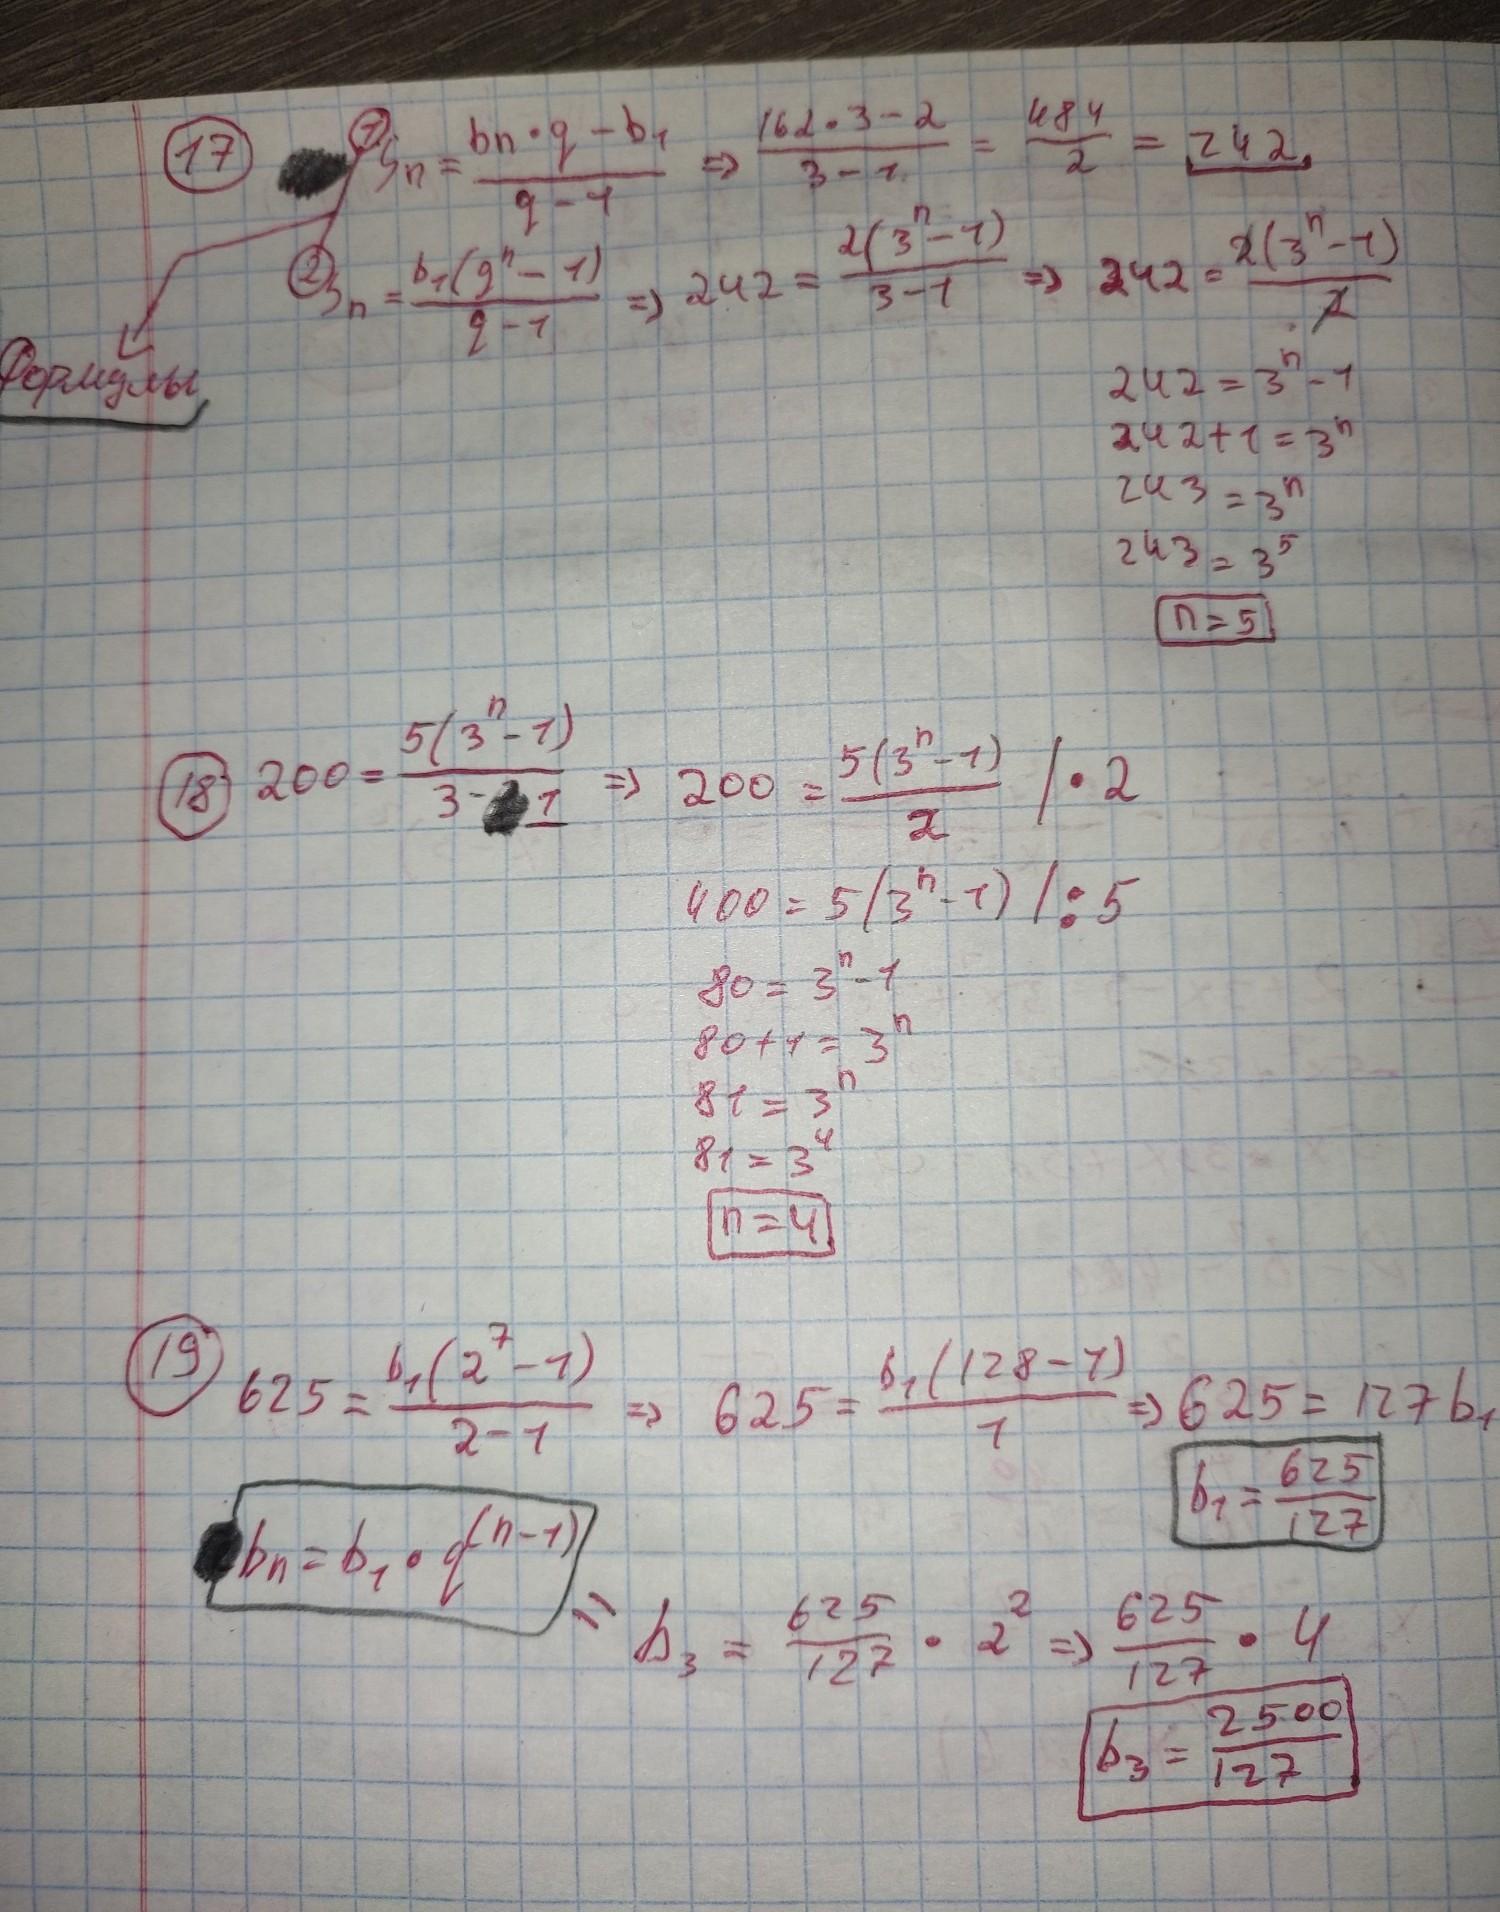 17 1 Sn = bn • q - b1 / q - 1 => 162 • 3 - 2 / 3 - 1 = 484 / 2 = 242
2 Sn = b1(q^n - 1) / q - 1 => 242 = 2(3^n - 1) / 3 - 1 => 242 = 2(3^n - 1) / 2
Формулы
242 = 3^n - 1
242 + 1 = 3^n
243 = 3^n
243 = 3^5
n = 5
18 200 = 5(3^n - 1) / 3 - 1 => 200 = 5(3^n - 1) / 2 | • 2
400 = 5(3^n - 1) | : 5
80 = 3^n - 1
80 + 1 = 3^n
81 = 3^n
81 = 3^4
n = 4
19 625 = b1(2^7 - 1) / 2 - 1 => 625 = b1(128 - 1) / 1 => 625 = 127 b1
b1 = 625 / 127
bn = b1 • q^(n - 1)
=> b3 = 625 / 127 • 2^2 => 625 / 127 • 4
b3 = 2500 / 127